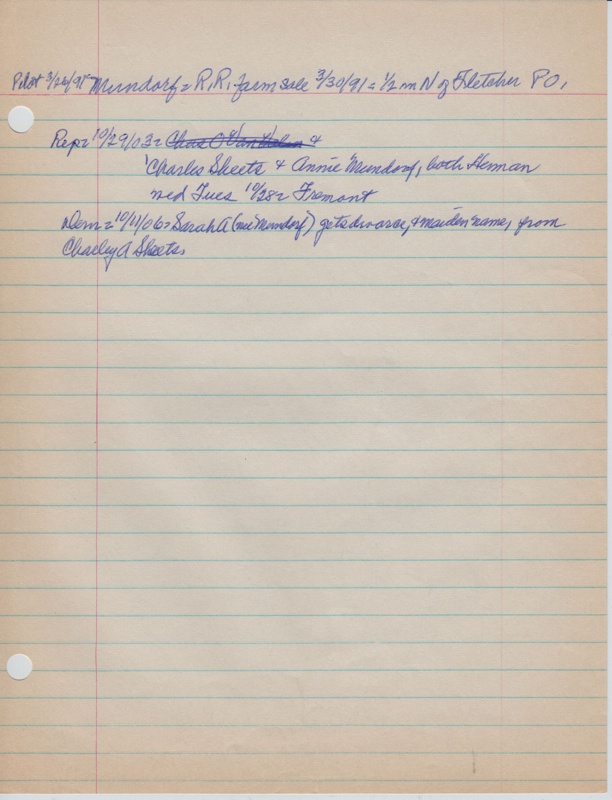 Pilot 3/26/91 Mundorf = R.R. farm sale 3/30/91 = 1/2 m N of Fletcher P O.
Rep = 10/29/03 = Chas O Van &
Charles Sheets & Annie Mundorf, both Herman
wed Tues 10/28 = Fremont
Dem = 10/11/06 = Sarah A (nee Mundorf) gets divorce, & maiden name, from
Charley A Sheets.